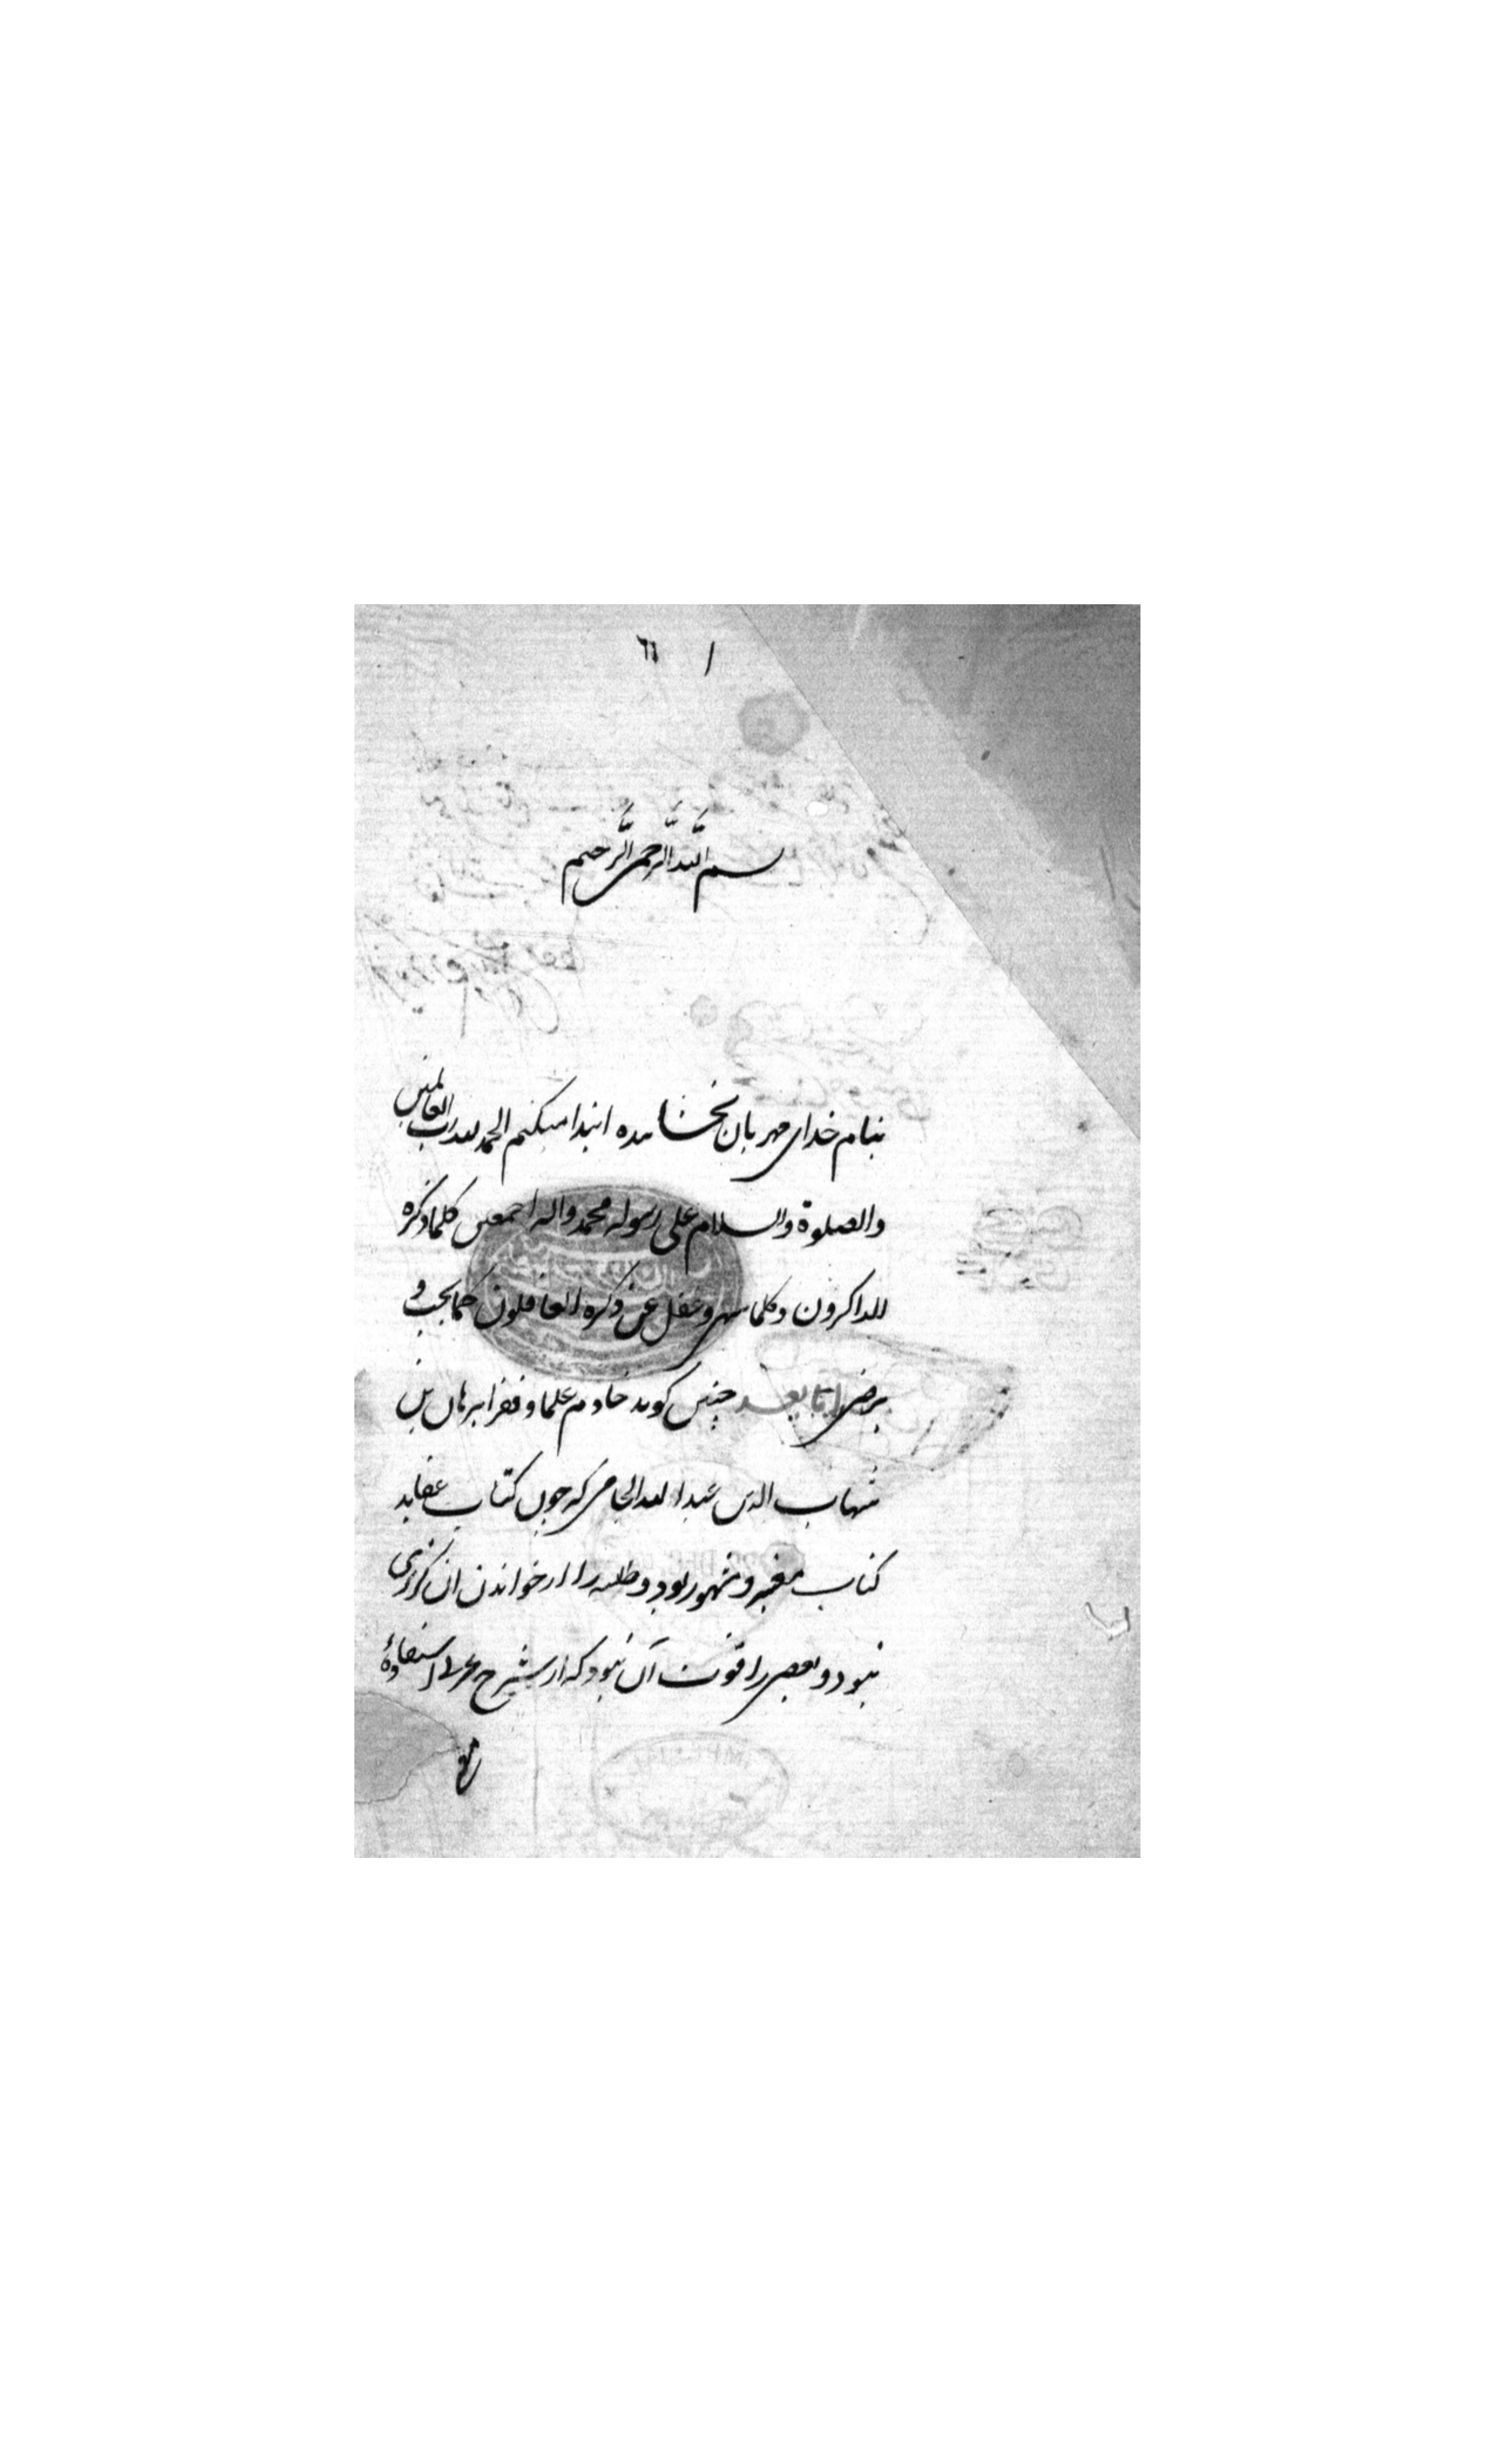 ١ ٦٦
بسم الله الرحمن الرحيم
بنام خدای مهربان بخشاینده ابتدا میکنم الحمد لله رب العالمین
والصلوة والسلام علی رسوله محمد واله اجمعین کلما ذکره
الذاکرون وکلما سهی وغفل عن ذکره الغافلون کما یحب و
یرضی اما بعد چنین کوید خادم علما و فقرا برهان بن
شهاب الدین عبد الله الجامی که چون کتاب عقاید
کتاب معتبر و مشهور بود و طلبه را از خواندن ان کزیری
نبود و بعضی را قوت آن نبود که از شرح عربی استفاده